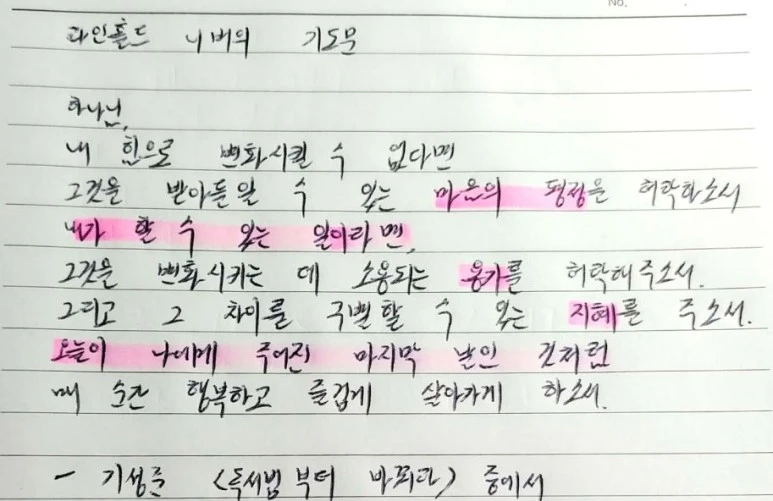 No.
라인홀드 니버의 기도문
하나님,
내 힘으로 변화시킬 수 없다면
그것을 받아들일 수 있는 마음의 평정을 허락하소서
내가 할 수 있는 일이라면,
그것을 변화시키는 데 소용되는 용기를 허락해주소서.
그리고 그 차이를 구별할 수 있는 지혜를 주소서.
오늘이 나에게 주어진 마지막 날인 것처럼
매 순간 행복하고 즐겁게 살아가게 하소서.
- 기성준 <독서법부터 바꿔라> 중에서